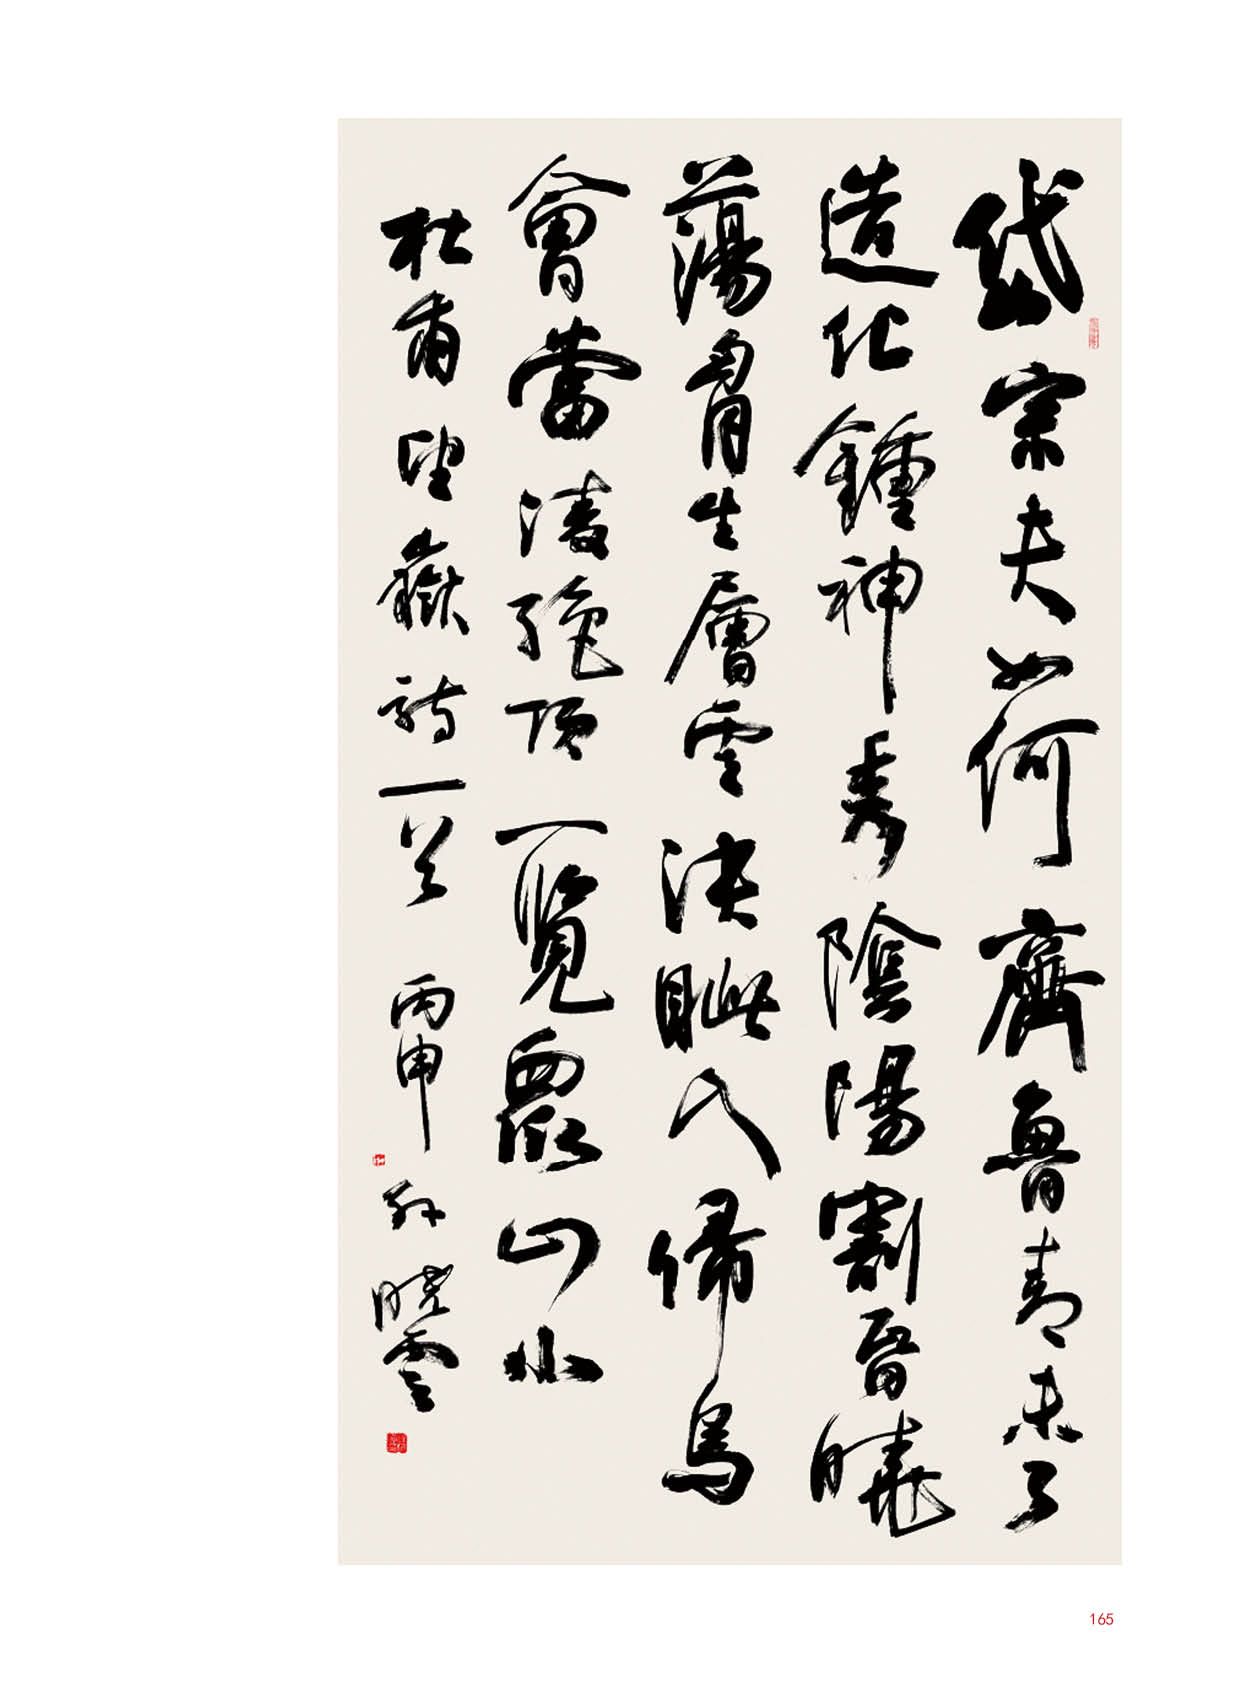 岱宗夫如何齊魯青未了
造化鍾神秀陰陽割昏曉
蕩胷生層雲決眦入歸鳥
會當淩絕頂一覽衆山小
杜甫望嶽詩一首 丙申 孙晓雲
165